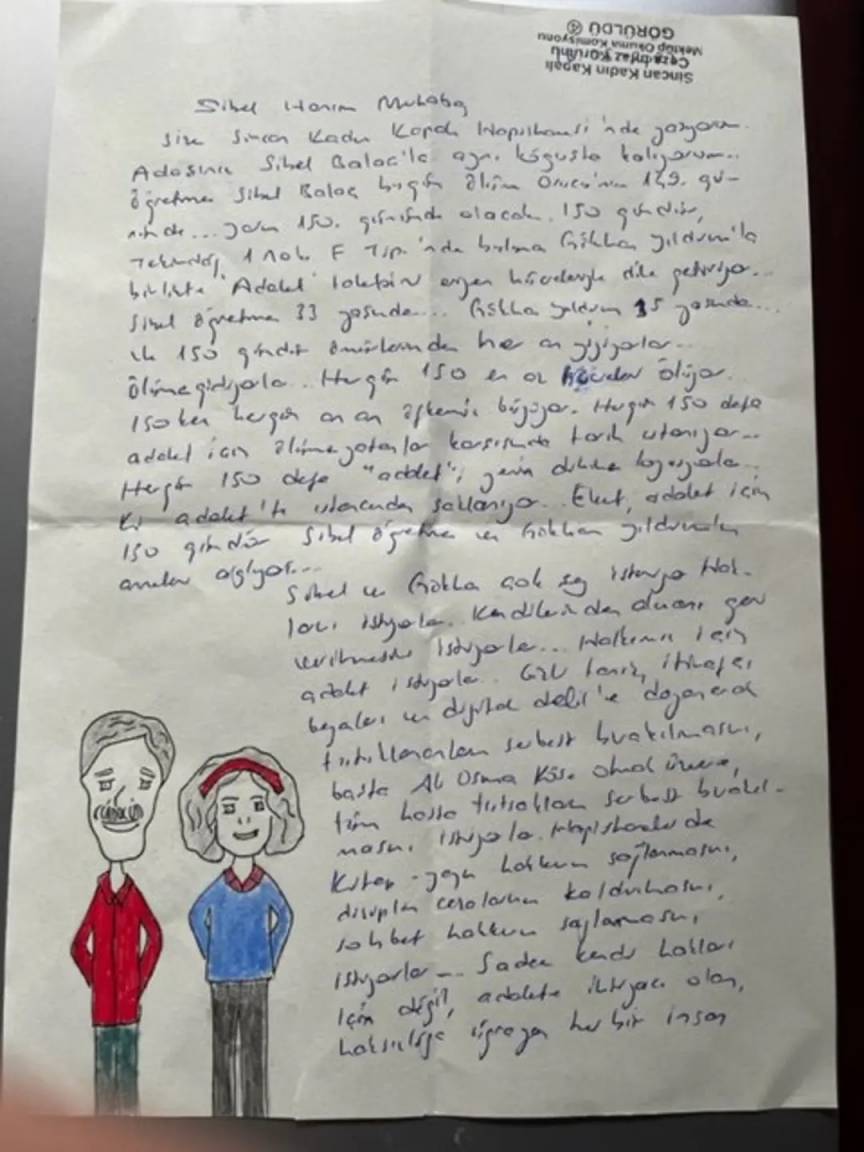 Sincan Kadın Kapalı
Ceza İnfaz Kurumu
Mektup Okuma Komisyonu
GÖRÜLDÜ
Sibel Hanım Merhaba
Size Sincan Kadın Kapalı Hapishanesi'nde yazıyorum.
Adaşınız Sibel Balaç'la aynı koğuşta kalıyorum..
Öğretmen Sibel Balaç bugün Ölüm Orucu'nun 149. gü-
nünde... yarın 150. gününde olacak. 150 gündür,
Tekirdağ 1 Nolu F Tipi'nde bulunan Gökhan Yıldırım'la
birlikte "Adalet" talebini eriyen hücreleriyle dile getiriyor...
Sibel öğretmen 33 yaşında... Gökhan Yıldırım 35 yaşında...
150 gündür ömürlerinden her an
ölüme gidiyorlar... Hergün 150 en az hücreler ölüyor.
150 ken hergün an an öfkemiz büyüyor. Hergün 150 defa
adalet için ölüme yatanlar karşısında tarih utanıyor...
Hergün 150 defa "adalet"i
ki adalet'te utancından saklanıyor... Evet, adalet için
150 gündür Sibel öğretmen ve Gökhan Yıldırım'ın
anaları ağlıyor...
Sibel ve Gökhan çok şey istemiyor Hak-
larını istiyorlar. Kendilerinden alınanı geri
verilmesini istiyorlar... Halkımız için
adalet istiyorlar. Gizli tanık, itirafçı
beyanları ve dijital delil'e dayanarak
tutuklananların serbest bırakılmasını,
başta Ali Osman Köse olmak üzere,
tüm hasta tutsakların serbest bırakıl-
masını istiyorlar. Hapishanelerde
Kitap - yayın hakkının sağlanmasını,
disiplin cezalarının kaldırılmasını,
sohbet hakkının sağlanmasını
istiyorlar... Sadece kendi hakları
için değil, adalete ihtiyacı olan,
haksızlığa uğrayan her bir insan